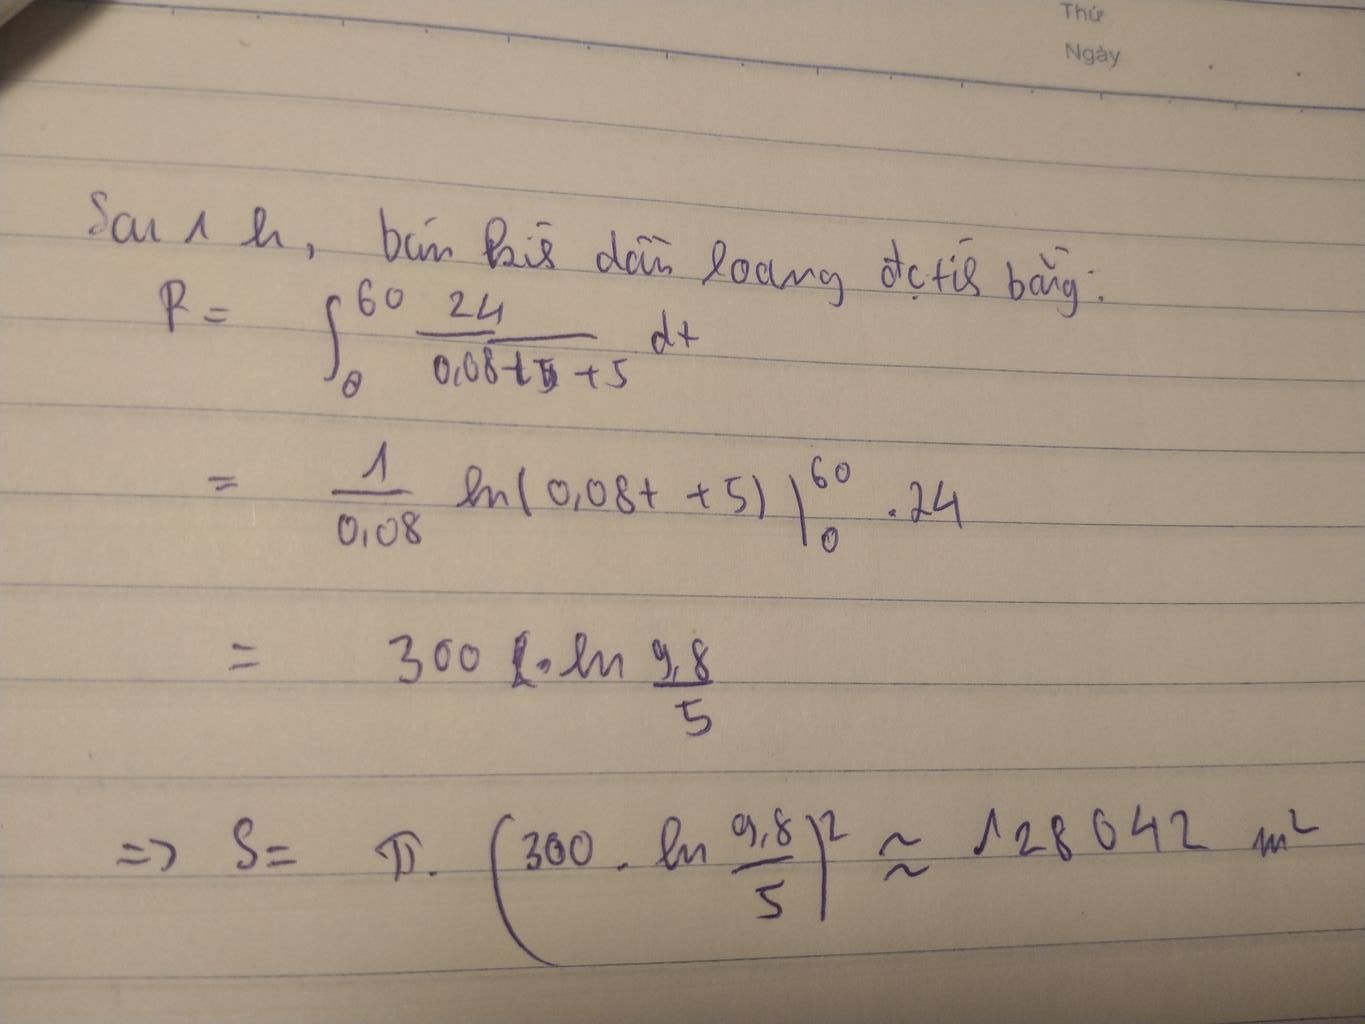 Thứ
Ngày
Sau 1 h, bán kính dầu loang đc tính bằng:
R = ∫₀⁶⁰ 24/(0,08t + 5) dt
= 1/0,08 ln(0,08t + 5) |₀⁶⁰ . 24
= 300 . ln 9,8/5
=> S = π. (300 . ln 9,8/5)² ≈ 128042 m²